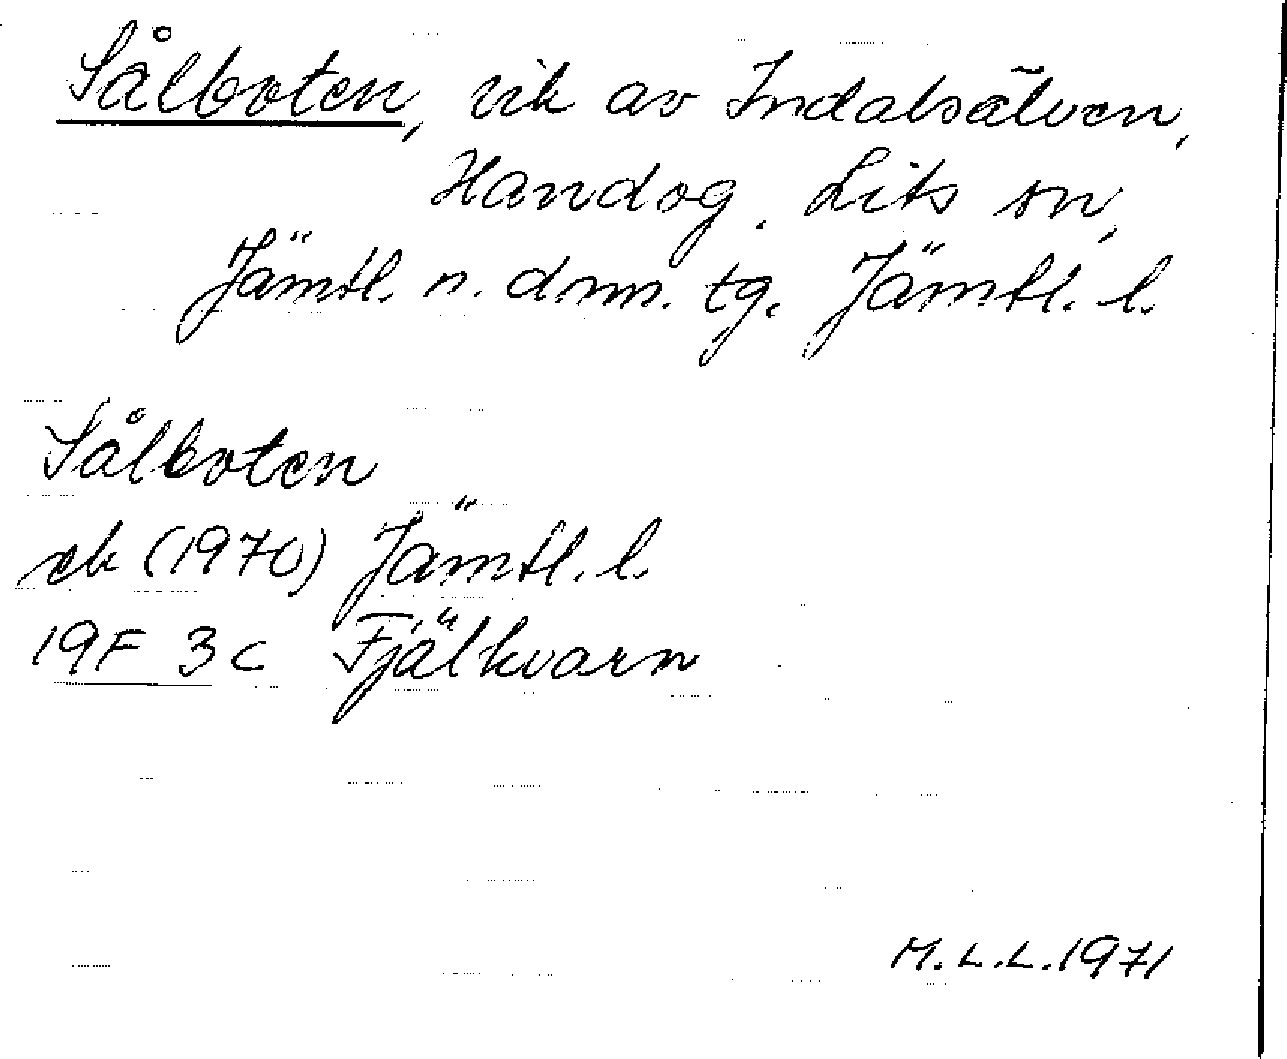 Sålboten, vik av Indalsälven,
Handog, Lits sn,
Jämtl. n. dmn. tg. Jämtl. l.
Sålboten
ek (1970) Jämtl. l.
19F 3c Fjälkvarn
M.L.L. 1971